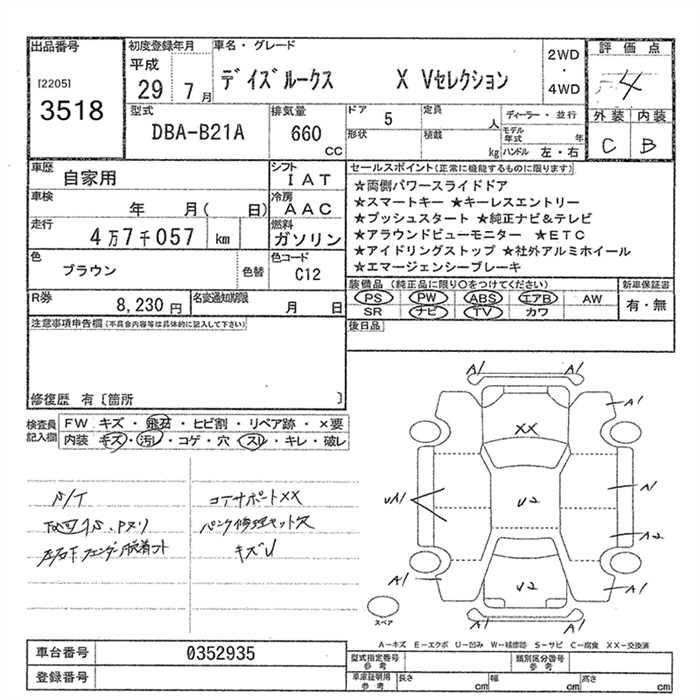 出品番号
[2205]
3518
初度登録年月
平成
29 7月
車名・グレード
デイズルークス X Vセレクション
2WD
・
4WD
評価点
4
外装 内装
C B
型式
DBA-B21A
排気量
660
CC
ドア 5
形状
定員 人
積載 kg
ディーラー・並行
モデル年式 年
ハンドル 左・右
車歴
自家用
シフト
IAT
車検
年 月( 日)
冷房
AAC
走行
4万7千057 km
燃料
ガソリン
色
ブラウン
色替
色コード
C12
R券
8,230円
名変通知期限
月 日
セールスポイント(正常に機能するものに限ります)
★両側パワースライドドア
★スマートキー ★キーレスエントリー
★プッシュスタート ★純正ナビ&テレビ
★アラウンドビューモニター ★ETC
★アイドリングストップ ★社外アルミホイール
★エマージェンシーブレーキ
装備品(純正品に限り○をつけてください)
PS PW ABS エアB AW
SR ナビ TV カワ
新車保証書
有・無
後日品
注意事項申告欄(不具合内容等は具体的に記入して下さい)
修復歴 有〔箇所 〕
検査員
記入欄
FW キズ・飛石・ヒビ割・リペア跡・×要
内装 キズ・汚レ・コゲ・穴・スレ・キレ・破レ
コアサポートXX
パンク修理キット欠
キズU
A1 A1
A1
XX
UA1
U2
A1
A2
A1
U2
A1
A1 A1
スペア
A-キズ E-エクボ U-凹み W-補修跡 S-サビ C-腐食 XX-交換済
車台番号 0352935
登録番号
型式指定番号
参考
類別区分番号
参考
車庫証明用
参考
長さ cm 幅 cm 高さ cm